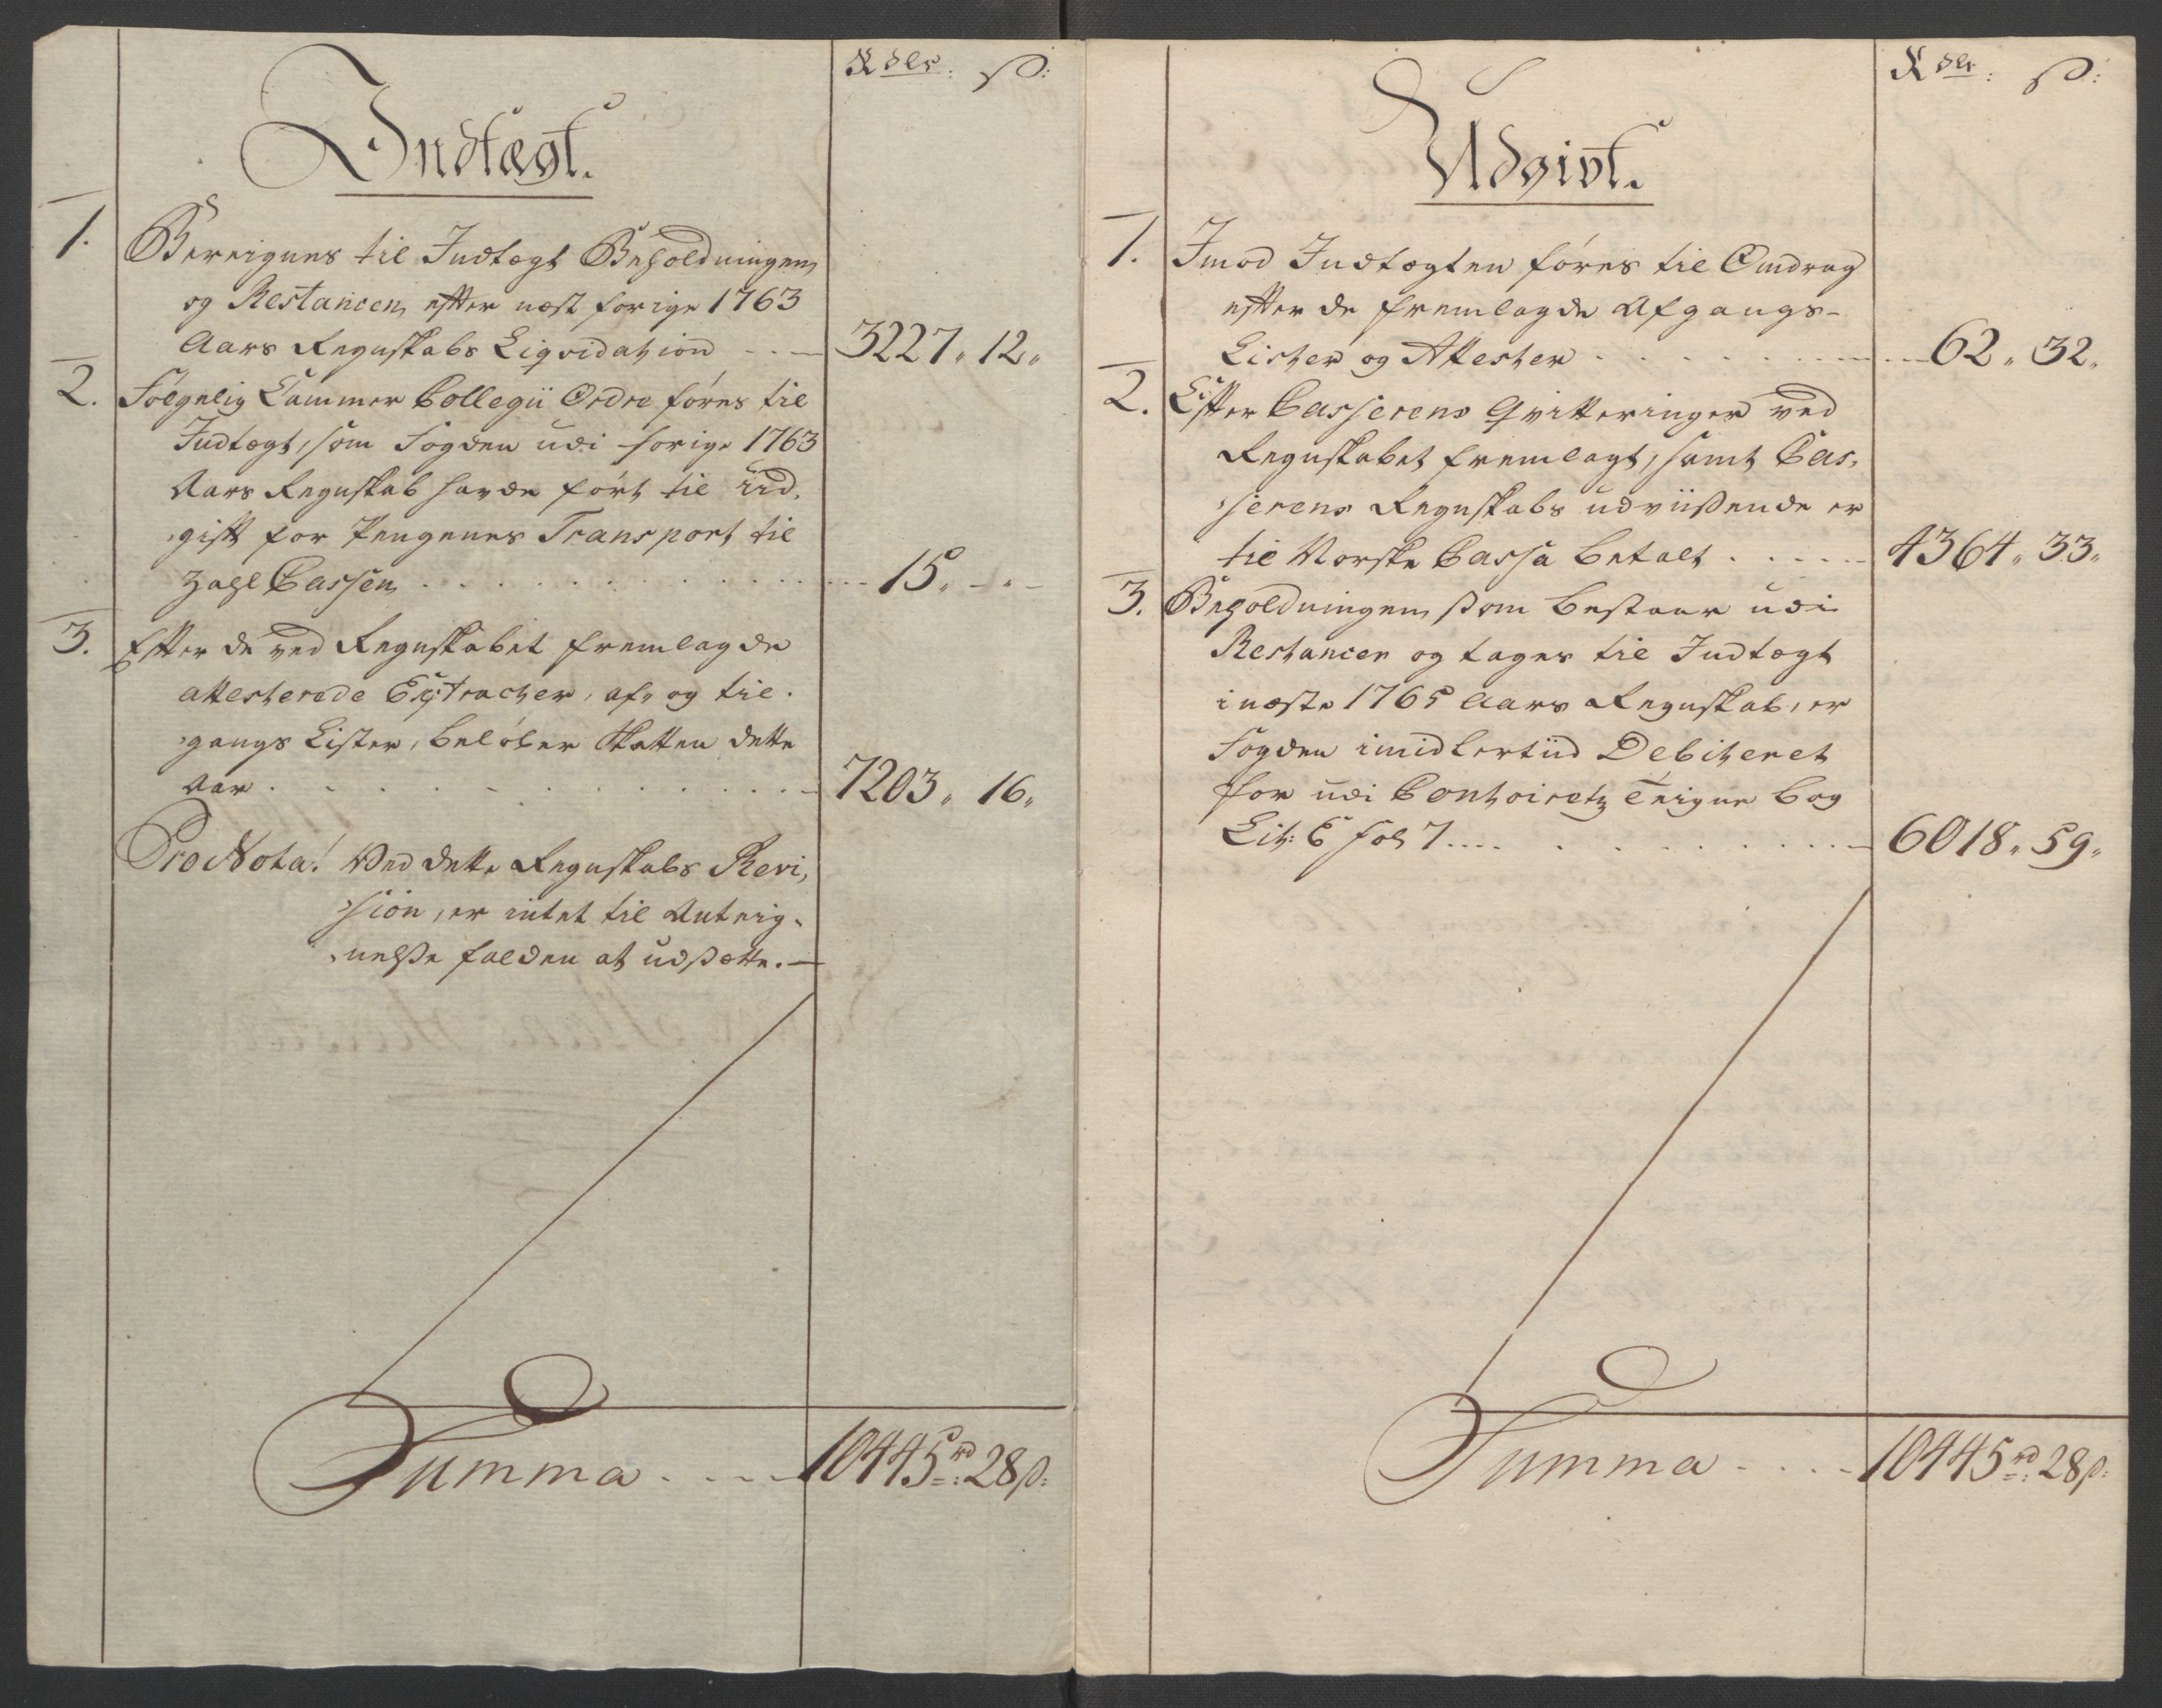 Rdlr: ß:
Indtægt.
1. Bereignes til Indtægt Beholdningen
og Restancen efter næst forige 1763
Aars Regnskabs Liqvidation - - — 3227 " 12 "
2. Følgelig Cammer Collegii Ordre føres til
Indtægt, som Fogden udi forige 1763
Aars Regnskab havde ført til Ud-
gift for Pengenes Transport til
Zahl Cassen . . . . . . . 15 " - " -
3. Efter de ved Regnskabet fremlagde
attesterede Extracter, af- og til-
gangs Lister, beløber Skatten dette
Aar . . . . . . . . 7203 " 16 "
Pro Nota! Ved dette Regnskabs Revi-
sion, er intet til Anteig-
nelsse falden at udsætte. —
Summa . . . . 10445 rd: 28 ß:
Rdlr: ß:
Udgivt.
1. Imod Indtægten føres til Omdrag
efter de fremlagde Afgangs-
Lister og Attester . . . . . . 62 " 32 "
2. Efter Casserens Qvitteringer ved
Regnskabet fremlagt, samt Cas-
serens Regnskabs udviissende er
til Norske Cassa betalt . . . . . 4364 " 33 "
3. Beholdningen som bestaar udi
Restancer og tages til Indtægt
i næste 1765 Aars Regnskab, er
Fogden imidlertiid Debiteret
for udi Contoiretz Teigne bog
Lit: E fol 7 . . . . . . . . 6018 " 59 "
Summa . . . . 10445 rd: 28 ß: